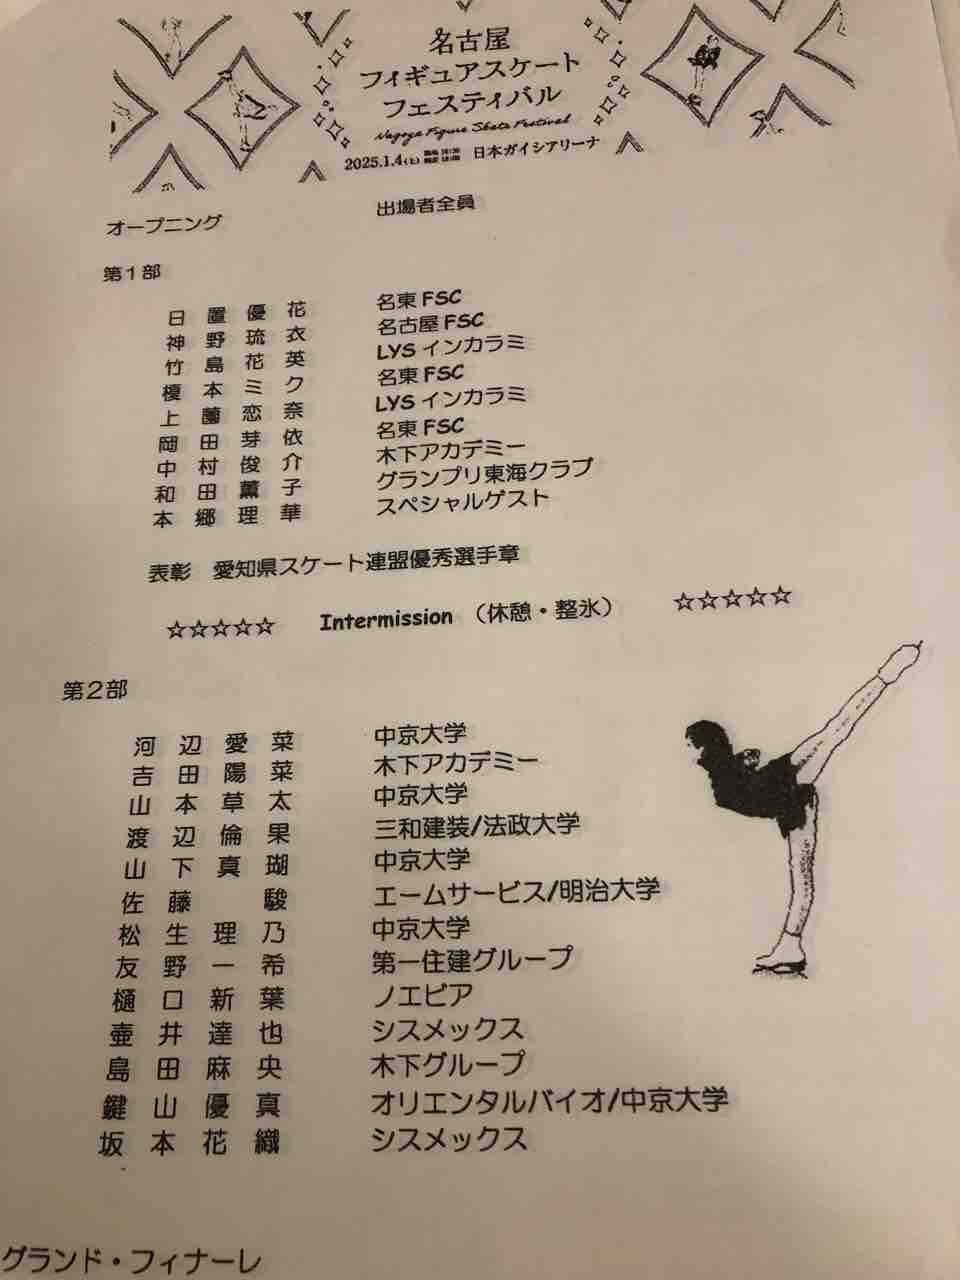 名古屋
フィギュアスケート
フェスティバル
Nagoya Figure Skate Festival
2025.1.4(土) 日本ガイシアリーナ
オープニング 出場者全員
第1部
日置優花 名東FSC
神野琉衣 名古屋FSC
竹島花英 LYSインカラミ
榎本ミク 名東FSC
上薗恋奈 LYSインカラミ
岡田芽依 名東FSC
中村俊介 木下アカデミー
和田薫子 グランプリ東海クラブ
本郷理華 スペシャルゲスト
表彰 愛知県スケート連盟優秀選手章
☆☆☆☆☆ Intermission （休憩・整氷） ☆☆☆☆☆
第2部
河辺愛菜 中京大学
吉田陽菜 木下アカデミー
山本草太 中京大学
渡辺倫果 三和建装/法政大学
山下真瑚 中京大学
佐藤 駿 エームサービス/明治大学
松生理乃 中京大学
友野一希 第一住建グループ
樋口新葉 ノエビア
壷井達也 シスメックス
島田麻央 木下グループ
鍵山優真 オリエンタルバイオ/中京大学
坂本花織 シスメックス
グランド・フィナーレ